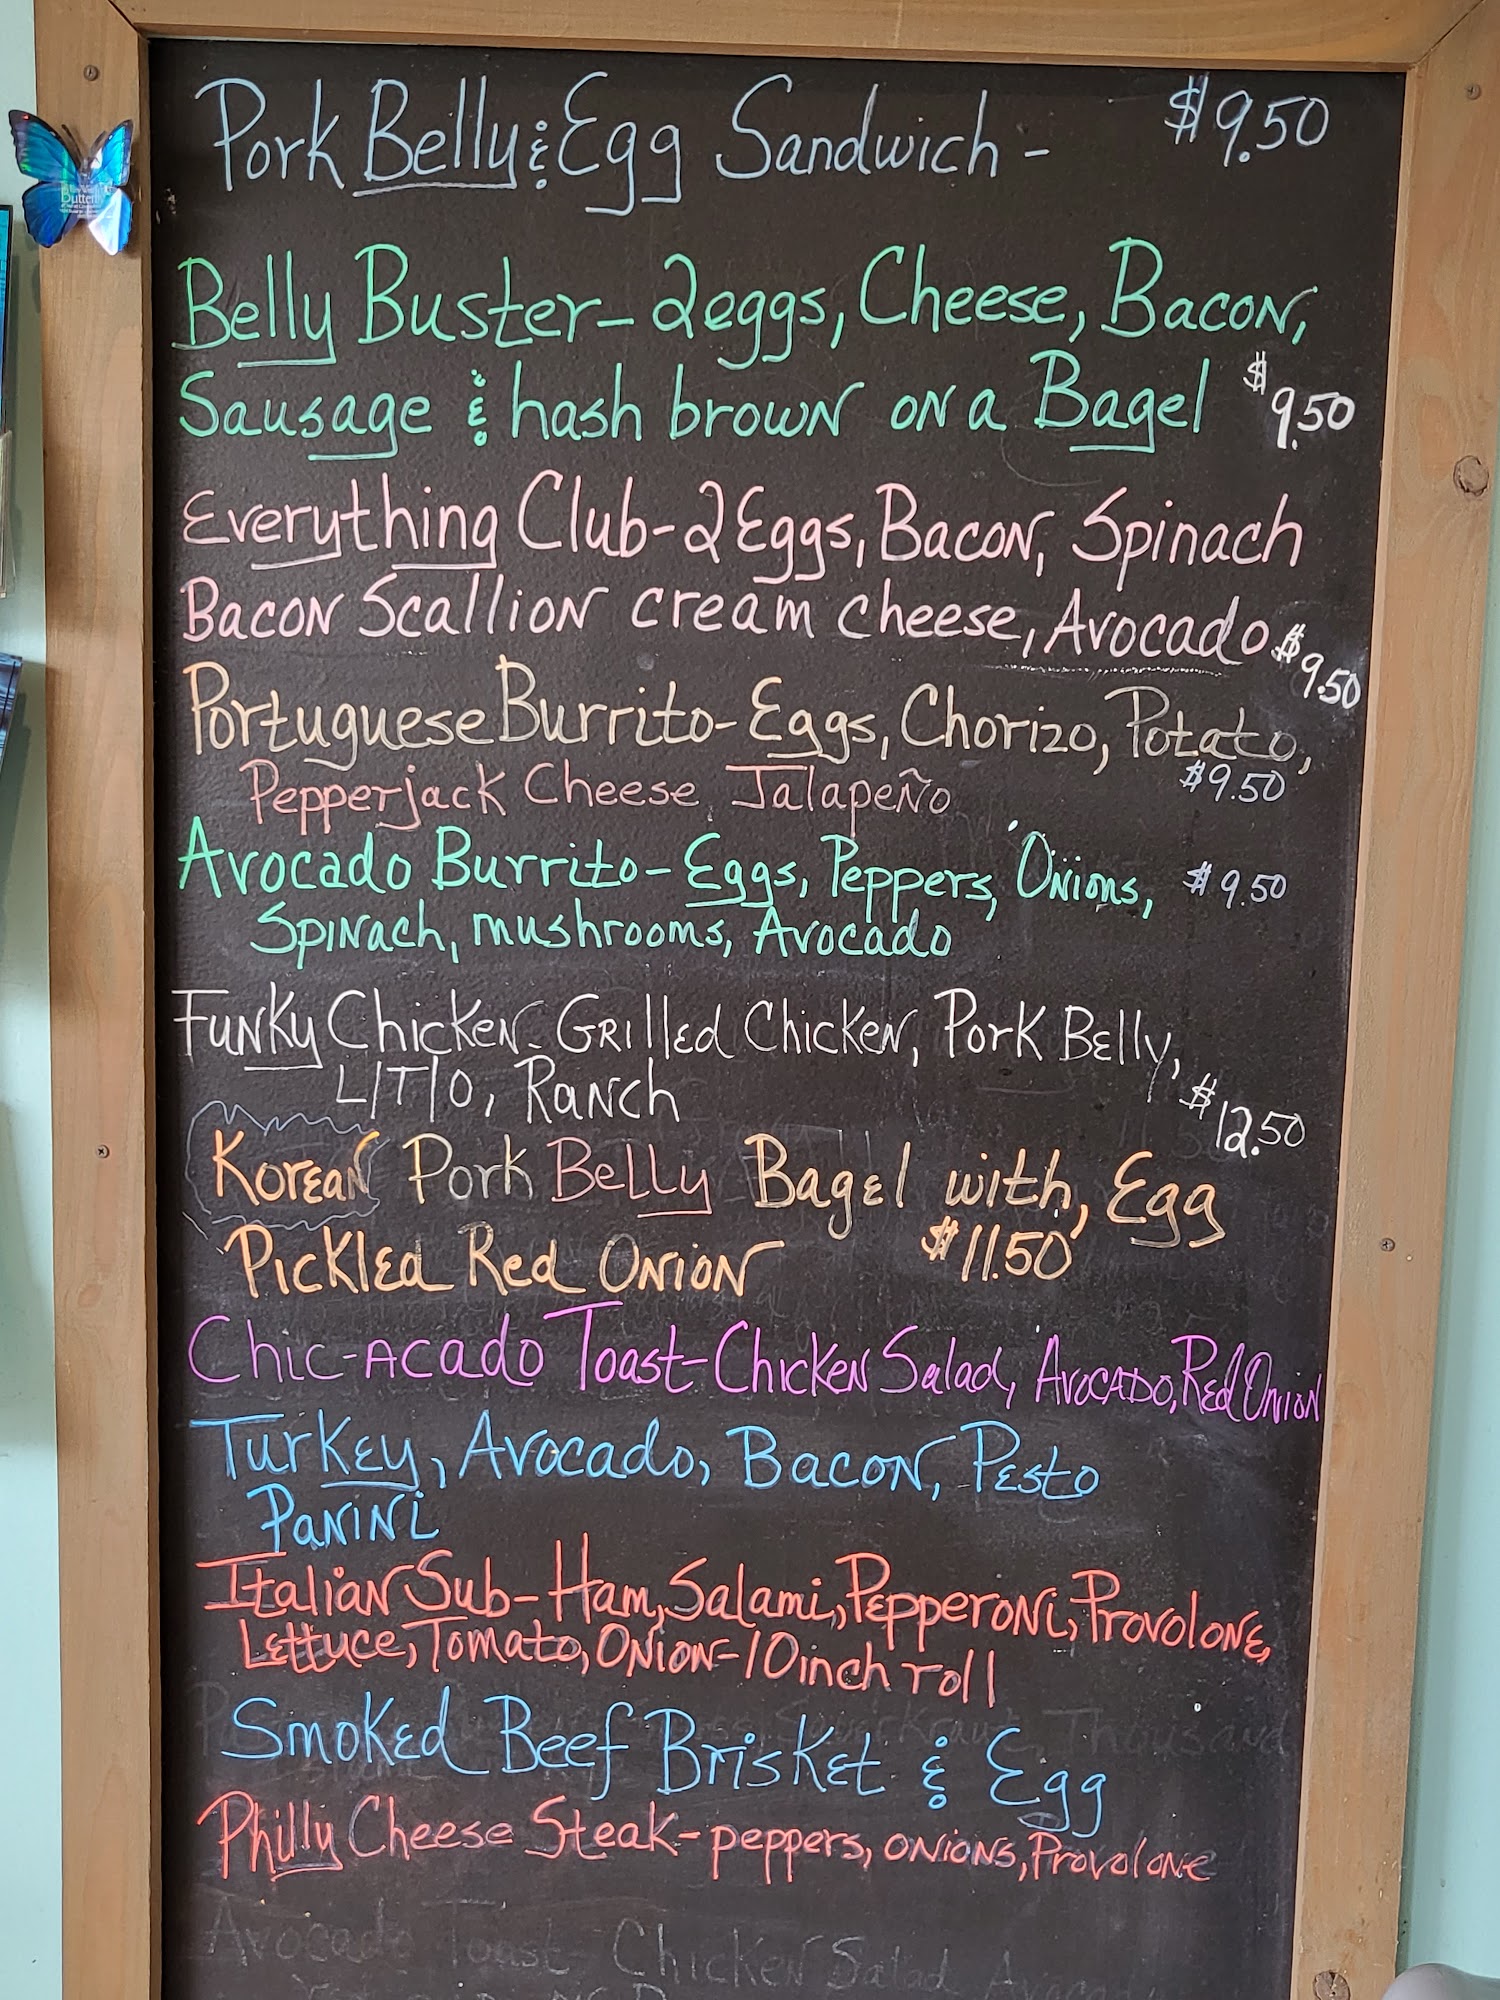 Pork Belly & Egg Sandwich - $9.50
Belly Buster - 2 eggs, Cheese, Bacon,
Sausage & hash brown on a Bagel $9.50
Everything Club - 2 Eggs, Bacon, Spinach
Bacon Scallion cream cheese, Avocado $9.50
Portuguese Burrito - Eggs, Chorizo, Potato,
Pepperjack Cheese, Jalapeño $9.50
Avocado Burrito - Eggs, Peppers, Onions, $9.50
Spinach, mushrooms, Avocado
Funky Chicken - Grilled Chicken, Pork Belly,
L/T/O, Ranch $12.50
Korean Pork Belly Bagel with, Egg
Pickled Red Onion $11.50
Chic-Acado Toast - Chicken Salad, Avocado, Red Onion
Turkey, Avocado, Bacon, Pesto
Panini
Italian Sub - Ham, Salami, Pepperoni, Provolone,
Lettuce, Tomato, Onion - 10 inch roll
Smoked Beef Brisket & Egg
Philly Cheese Steak - peppers, onions, Provolone
Avocado Toast - Chicken Salad Avoca